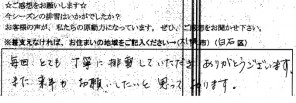 ☆ご感想をお願いします☆
今シーズンの排雪はいかがでしたか?
お客様の声が、私たちの原動力になっています。ぜひ、ご感想をお聞かせ下さい。
※差支えなければ、お住まいの地域をご記入ください→(札幌市)(白石区)
毎回とても丁寧に排雪していただき ありがとうございます。
また来年もお願いしたいと思っております。